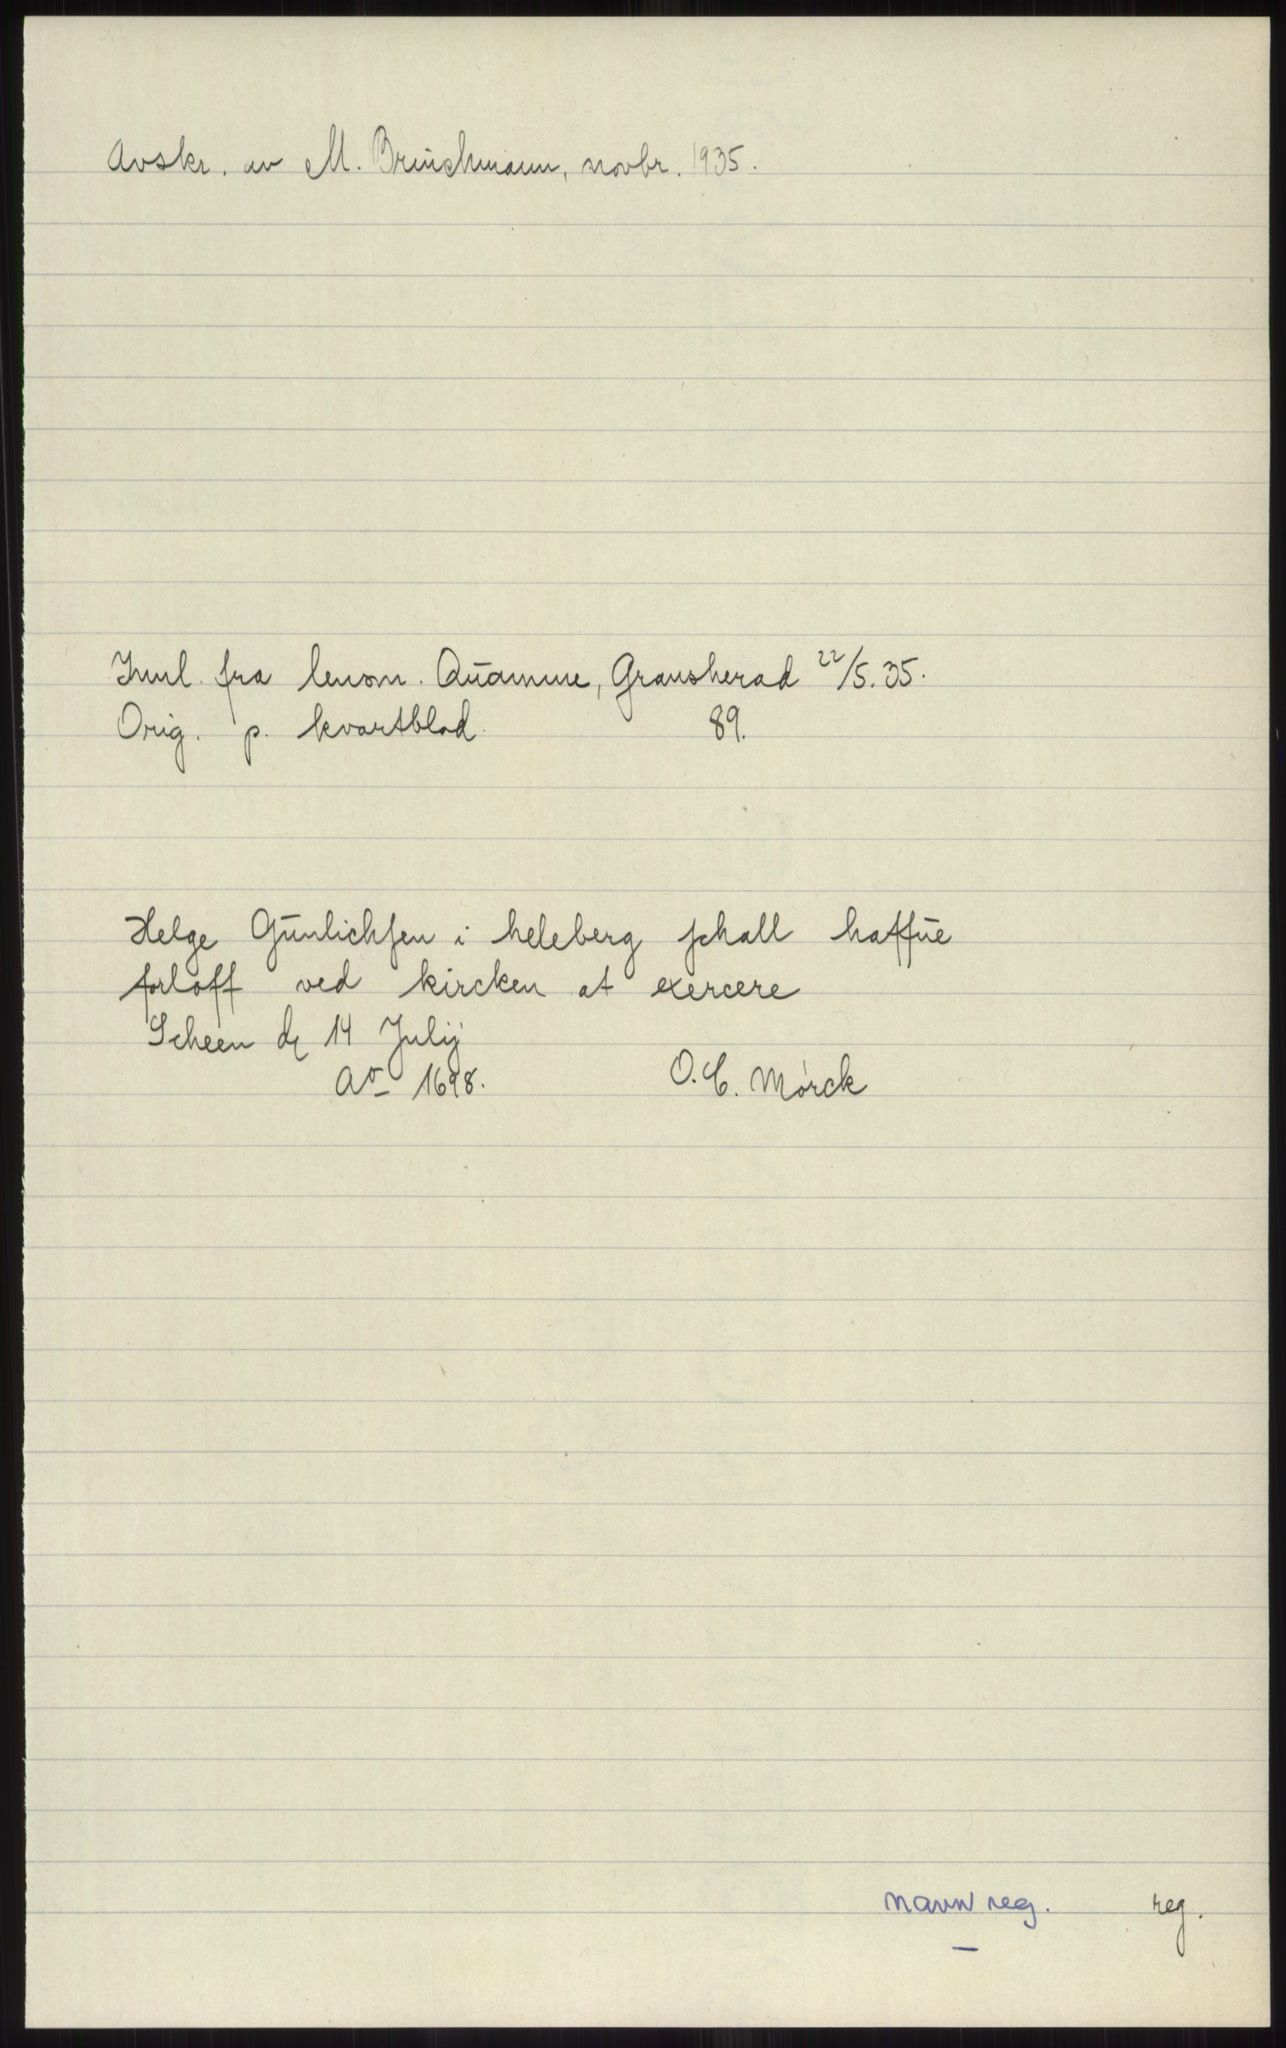 Avskr. av M. Brinchmann, novbr. 1935.
Innl. fra lensm. Quamme, Gransherad 22/5.35.
Orig. p. kvartblad. 89.
Helge Gunlichsen i heleberg schall haffue
forloff ved kircken at exercere
Scheen d 14 Julij
Ao 1698. O.C. Mørck
navn reg. reg.